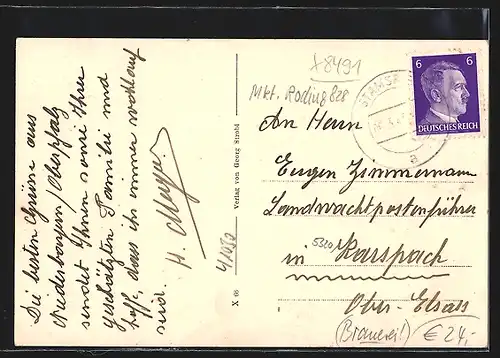 Die besten Grüsse aus
Niederbayern/Oberpfalz
sendet Ihnen sowie Ihrer
geschätzten Familie und
hoffe, dass ihr immer wohlauf
seid.
H. Meyer
4/1030
Verlag von Georg Strobl
X 66
+8491
Mkt. Roding 828
STAMSR
a
6 6
DEUTSCHES REICH
An Herrn
Eugen Zimmermann
Landwachtpostenführer
in 5320 Kaysbach
Ober-Elsass
(Brauerei!) € 24,-